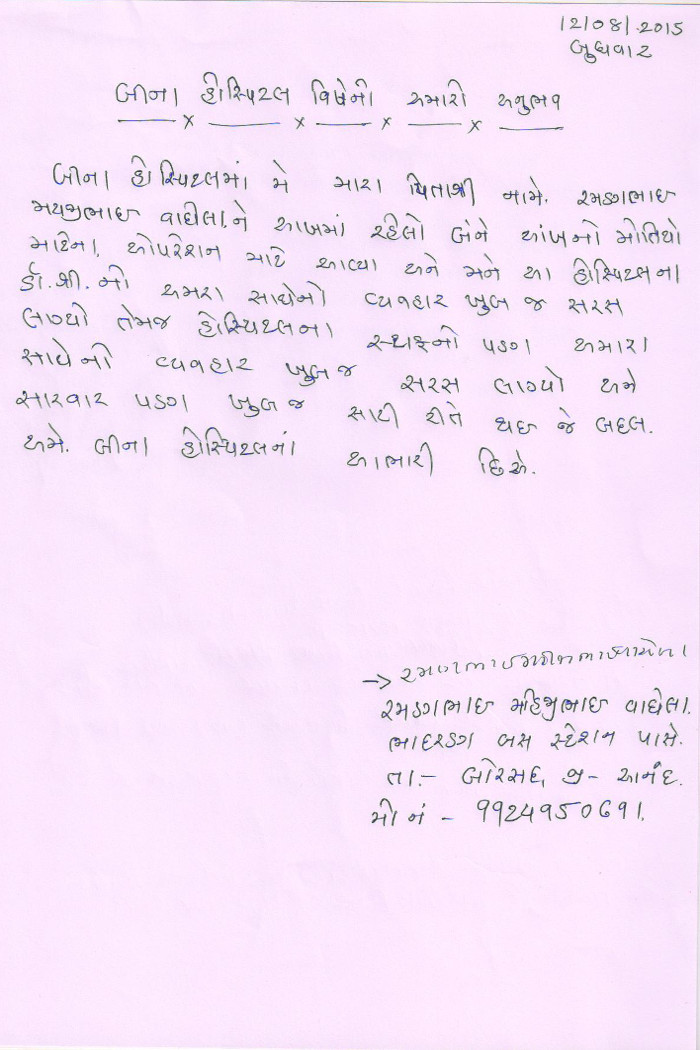 12/08/.2015
બુધવાર
બીના હોસ્પિટલ વિષેનો અમારો અનુભવ
બીના હોસ્પિટલમાં મે મારા પિતાશ્રી નામે. રમણભાઇ
મયજીભાઇ વાઘેલા.ને આખમાં રહેલો બંને આંખનો મોતિયો
માટેના. ઓપરેશન માટે આવ્યા અને મને આ હોસ્પિટલના
ડૉ.શ્રી.નો અમારા સાથેનો વ્યવહાર ખુબ જ સરસ
લાગ્યો તેમજ હોસ્પિટલના સ્ટાફનો પણ અમારા
સાથેનો વ્યવહાર ખુબ જ સરસ લાગ્યો અને
સારવાર પણ ખુબ જ સારી રીતે થઇ જે બદલ.
અમે. બીના હોસ્પિટલનાં આભારી છિએ.
→ રમણભાઇ
રમણભાઇ મહિજીભાઇ વાઘેલા.
ભાદરણ બસ સ્ટેશન પાસે.
તા.- બોરસદ, જી- આનંદ.
મો નં - 9924950691.